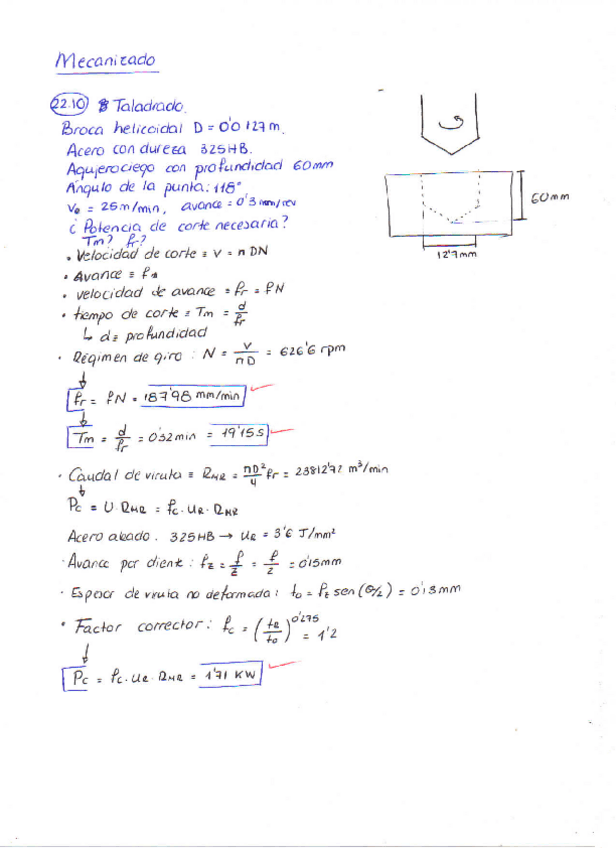 Mecanizado
22.10 Taladrado.
Broca helicoidal D = 0'0127m.
Acero con dureza 325HB.
Agujero ciego con profundidad 60mm
Ángulo de la punta: 118°
Ve = 25m/min, avance = 0'3 mm/rev
¿Potencia de corte necesaria?
Tm? fr?
• Velocidad de corte = v = πDN
• Avance = f
• Velocidad de avance = fr = fN
• tiempo de corte = Tm = d/fr
↳ d = profundidad
• Régimen de giro : N = v/πD = 626'6 rpm
↓
fr = fN = 187'98 mm/min
↓
Tm = d/fr = 0'32 min = 19'15 s
• Caudal de viruta = RMR = πD²/4 fr = 23812'72 m³/min
↓
Pc = U·RMR = fc·UR·RMR
Acero aleado. 325HB → UR = 3'6 J/mm²
• Avance por diente : fz = f/z = f/2 = 0'15mm
• Espesor de viruta no deformada : to = fz sen(θ/2) = 0'13mm
• Factor corrector : fc = (tR/to)^0'275 = 1'2
↓
Pc = fc·UR·RMR = 1'71 KW
60mm
12'7mm